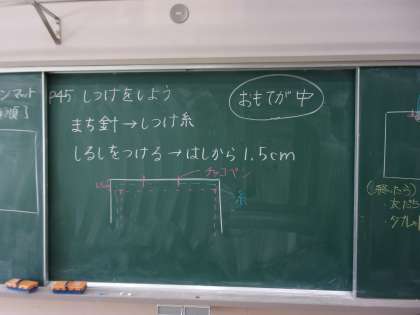 ンマット
P45 しつけをしよう
おもてが中
まち針→しつけ糸
しるしをつける→はしから1.5cm
チャコペン
糸
(終ったら)
・友だち
・タブレッ